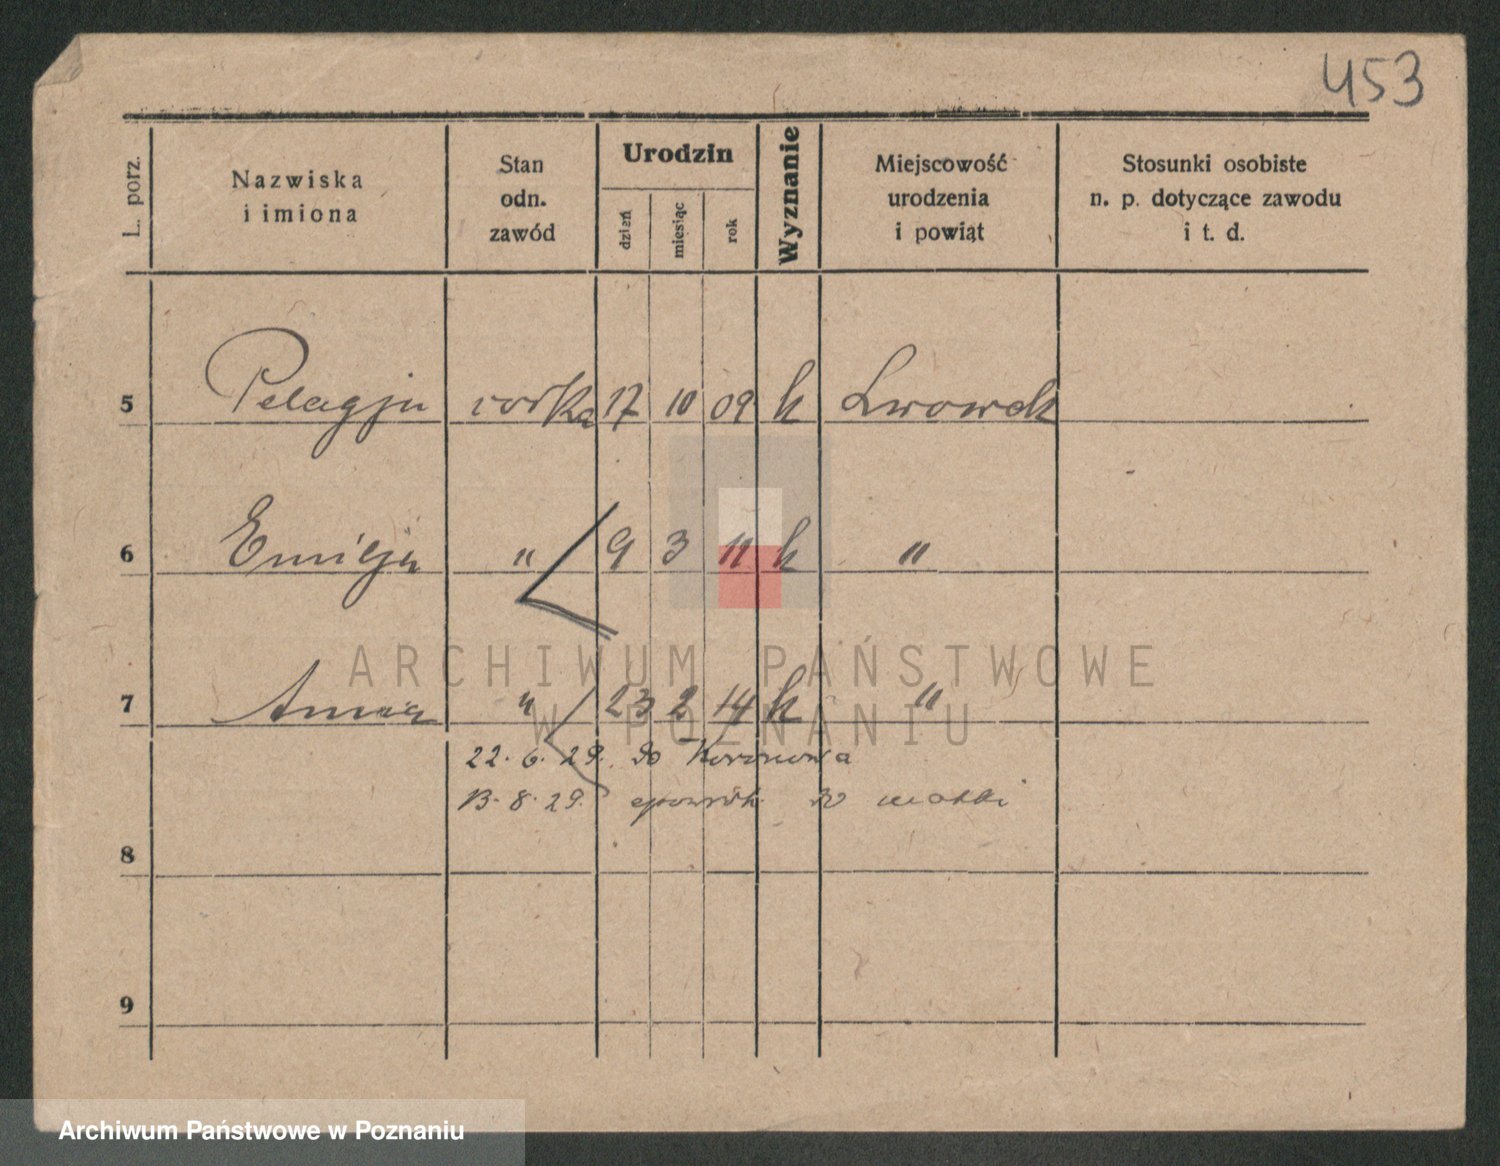 453
L. porz.
Nazwiska
i imiona
Stan
odn.
zawód
Urodzin
dzień
miesiąc
rok
Wyznanie
Miejscowość
urodzenia
i powiąt
Stosunki osobiste
n. p. dotyczące zawodu
i t. d.
5 Pelagja córka 17 10 09 k Lwowek
6 Emilja " 9 3 11 k "
7 Anna " 23 2 14 k "
22. 6. 29. do Koronowa
13. 8. 29. do matki
8
9
ARCHIWUM PAŃSTWOWE
W POZNANIU
Archiwum Państwowe w Poznaniu